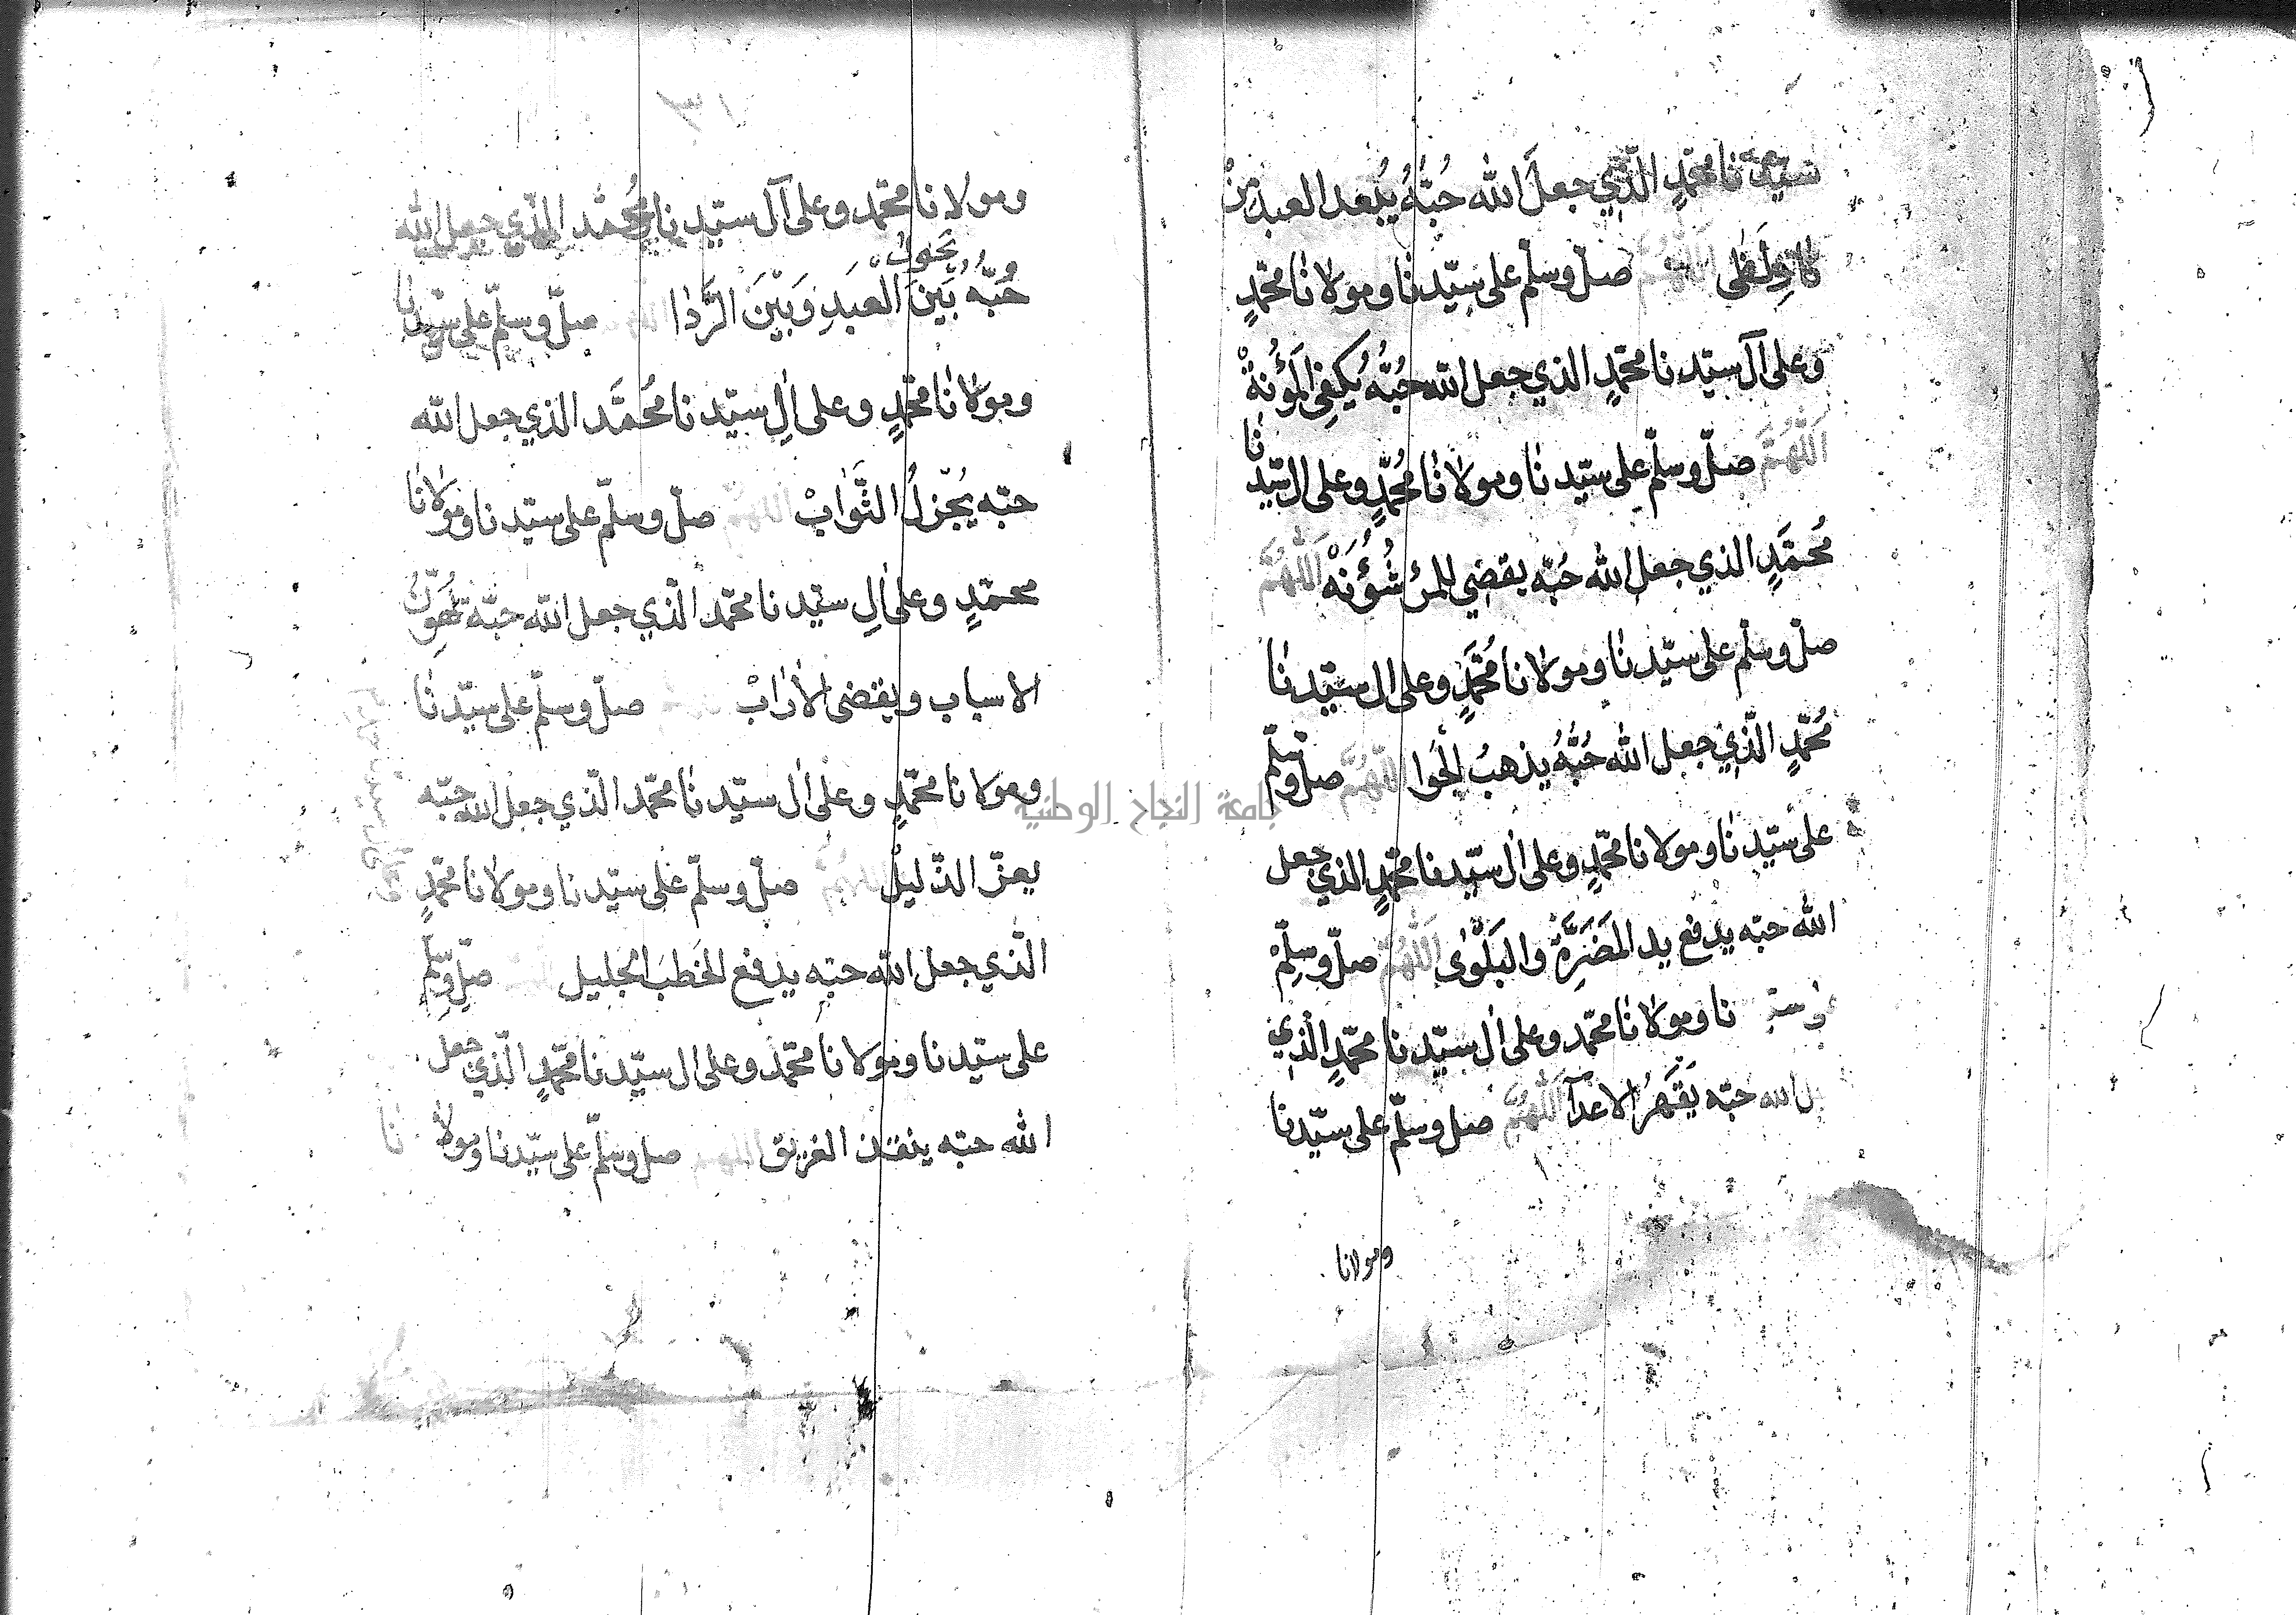 سيّدنا محمّدٍ الّذي جعلَ الله حُبُّهُ يُبعد العبد مِنْ
نارِ لَظٰى اللّٰهُمَّ صلّ وسلّم على سيّدنا ومولانا محمّدٍ
وعلى آل سيّدنا محمّدٍ الذي جعل الله حُبُّهُ يُكفِي المَؤُنَةْ
اَللّٰهُمَّ صلّ وسلّم على سيّدنا ومولانا مُحمَّدٍ وعلى ال سيّدنا
مُحمَّدٍ الذي جعل الله حُبّه يقضي للمرءِ شُؤُنَهْ اَللّٰهُمَّ
صلّ وسلّم على سيّدنا ومولانا مُحمَّدٍ وعلى ال سيّدنا
مُحمّدٍ الّذي جعل الله حُبُّهُ يذهبُ الجَوا اللّٰهُمَّ صلّ وسلّم
على سيّدنا ومولانا محمّدٍ وعلى اٰل سيّدنا محمّدٍ الذي جعل
الله حبّه يدفع يد المَضَرَّةِ والبَلْوٰى اَللّٰهُمَّ صلّ وسلّمْ
نا ومولانا محمّد وعلى اٰل سيّدنا محمّدٍ الّذي
الله حبّه يَقْهَرُ الاعدآ اَللّٰهُمَّ صل وسلّم على سيّدنا
ومولانا
ومولانا محمّد وعلى آل سيّدنا مُحمَّد الّذي جعل الله
يحول
حُبُّهُ بَيْنَ الْعَبدِ وَبَيْنَ الرَّدٰا صلّ وسلّم على سيّدنا
ومولانا محمّدٍ وعلى اٰلِ سيّدنا مُحَمَّد الذي جعل الله
حبّه يُجْزلُ الثَّوَابْ اللهم صلّ وسلّم على سيّدنا ومولانا
محمّدٍ وعلى اٰلِ سيّدنا محمّد الّذي جعل الله حبّه يُهَوِّنُ
الاسباب ويقضى الاٰرٰابْ صلّ وسلّم على سيّدنا
ومولانا محمّدٍ وعلى اٰل سيّدنا محمّد الّذي جعل الله حبّه
يعزّ الذّليلْ صلّ وسلّم على سيّدنا ومولانا محمّدٍ
الّذي جعل الله حبّه يدفع الخَطبَ الجليل صلّ وسلّم
على سيّدنا ومولانا محمّد وعلى اٰل سيّدنا محمّدٍ الّذي جعل
الله حبّه ينقذ الغريق اللهم صل وسلّم على سيّدنا ومولانا
جامعة النجاح الوطنية